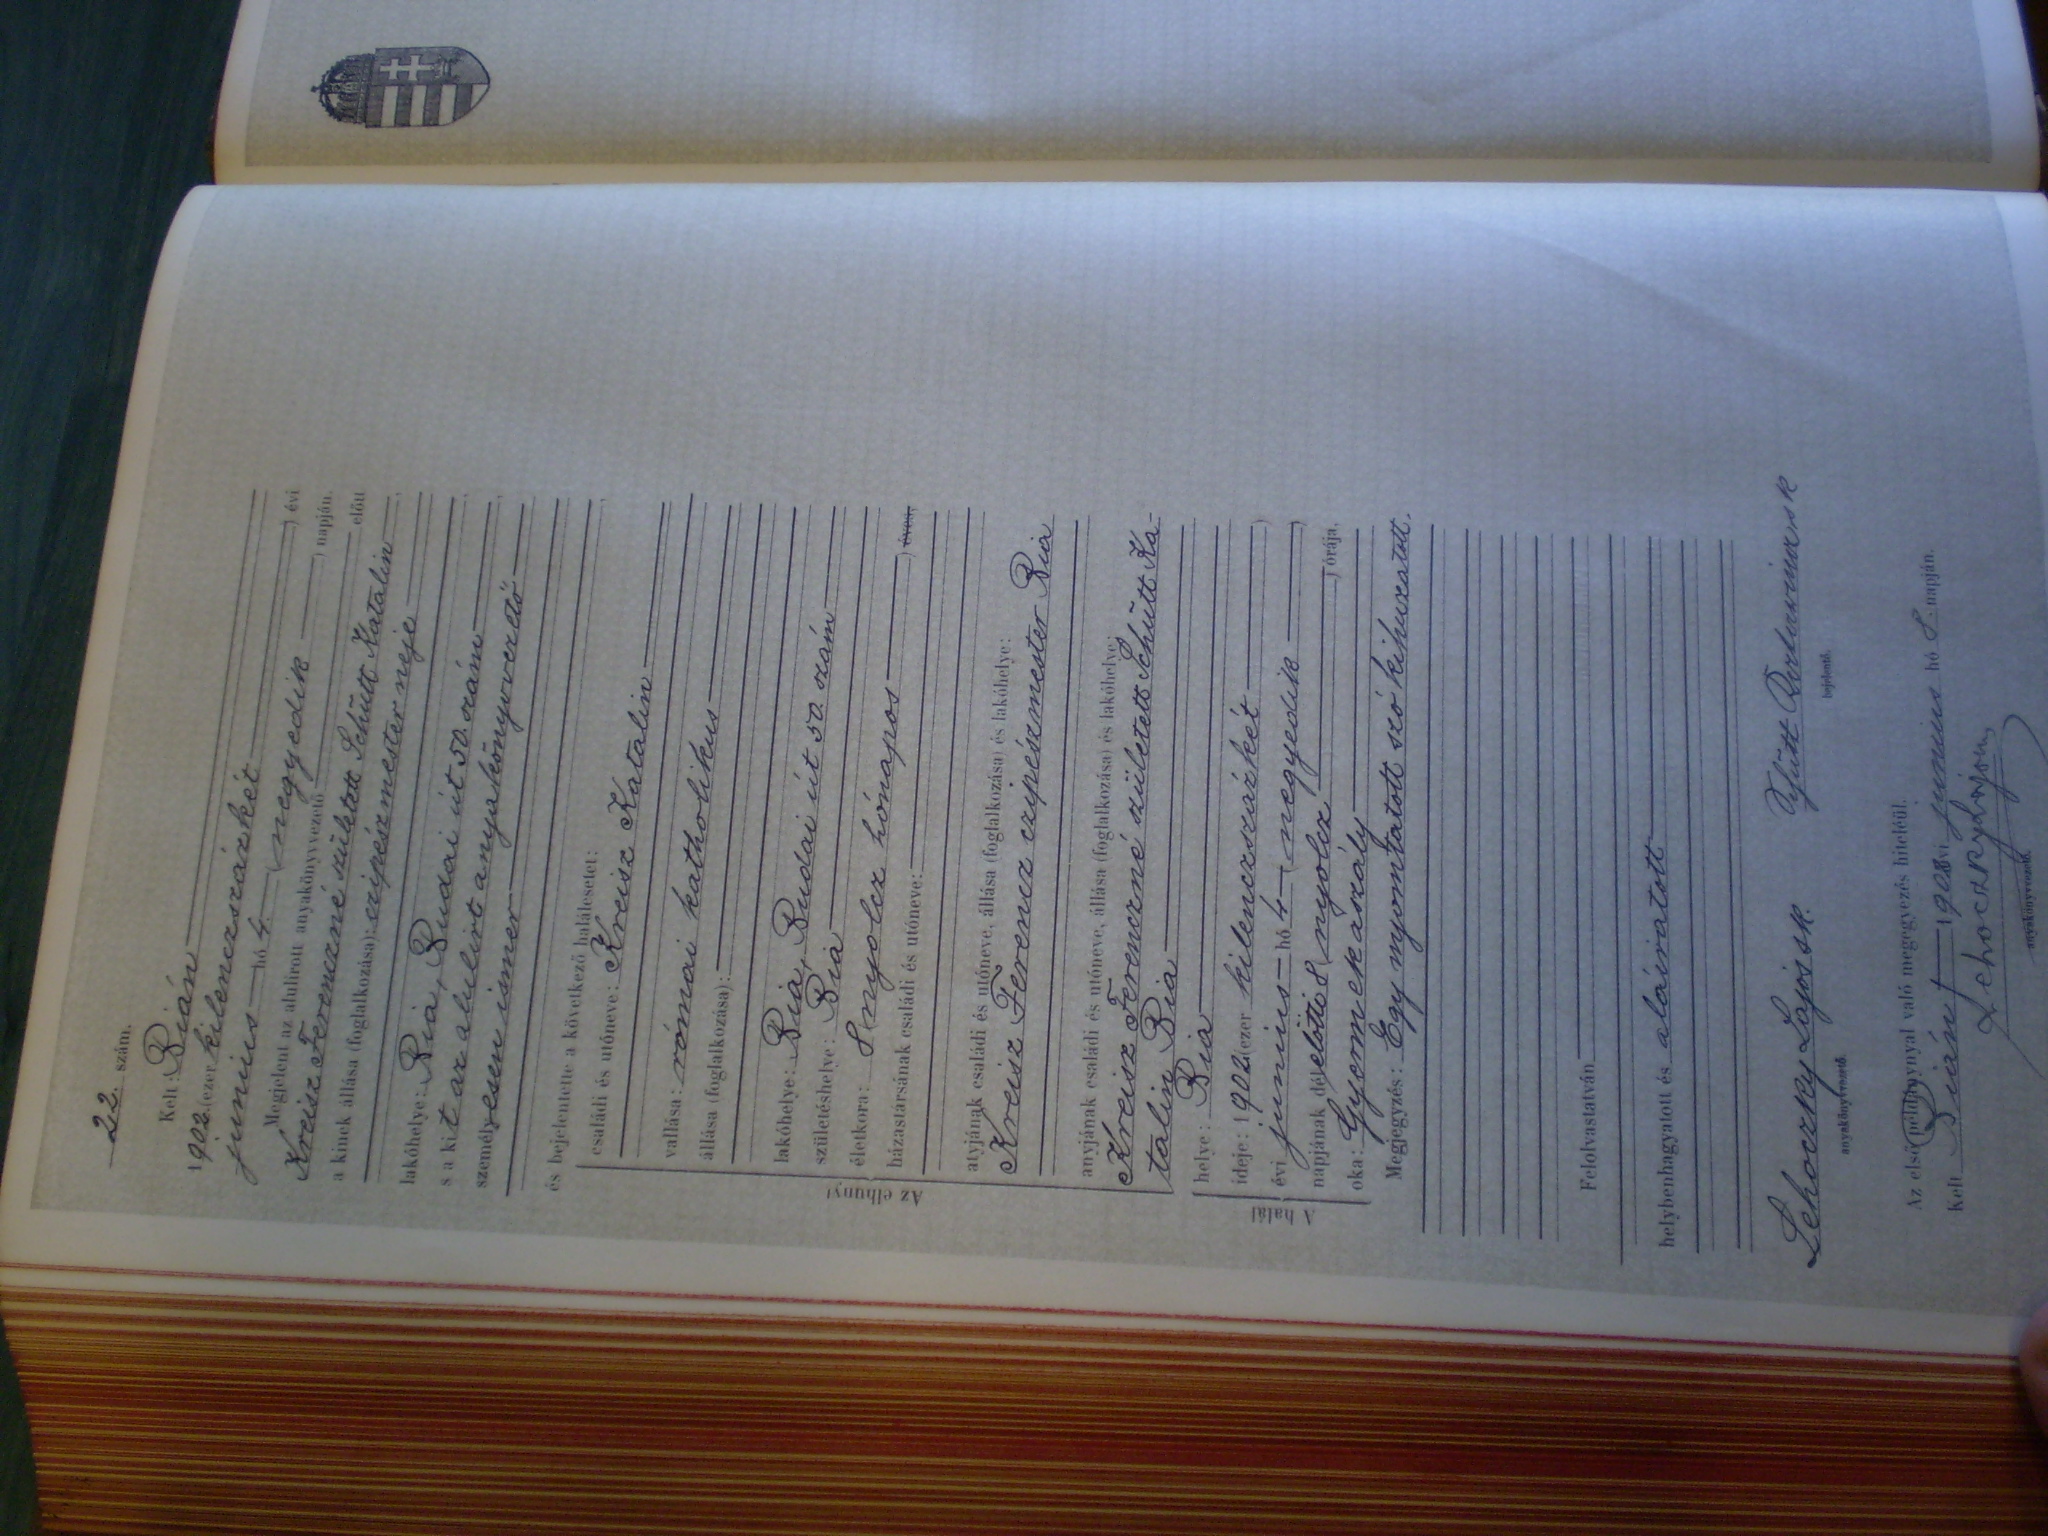 22. szám.
Kelt: Bián
1902. (ezer kilenczszázkét ) évi
junius hó 4. (negyedik ) napján.
Megjelent az alulirott anyakönyvvezető előtt
Kreisz Ferenczné született Schütt Katalin,
a kinek állása (foglalkozása): czipészmester neje,
lakóhelye: Bia, Budai út 50. szám,
s a kit az alulirt anyakönyvvezető
személyesen ismer
és bejelentette a következő halálesetet:
Az elhunyt
családi és utóneve: Kreisz Katalin
vallása: római katholikus
állása (foglalkozása):
lakóhelye: Bia, Budai út 50. szám
születéshelye: Bia
életkora: 8 (nyolcz hónapos ) éves,
házastársának családi és utóneve:
atyjának családi és utóneve, állása (foglalkozása) és lakóhelye:
Kreisz Ferencz czipészmester Bia
anyjának családi és utóneve, állása (foglalkozása) és lakóhelye:
Kreisz Ferenczné született Schütt Ka-
talin Bia
A halál
helye: Bia
ideje: 1902 (ezer kilenczszázkét )
évi junius hó 4 (negyedik )
napjának délelőtti 8 (nyolcz ) órája,
oka: Gyermekaszály
Megjegyzés: Egy nyomtatott szó kihuzatott.
Felolvastatván
helybenhagyatott és aláiratott
Lehoczky Lajos sk.
anyakönyvvezető.
bejelentő.
Az első példánynyal való megegyezés hiteléül.
Kelt Bián 190 évi junius hó napján.
Lehoczky Lajos
anyakönyvvezető.